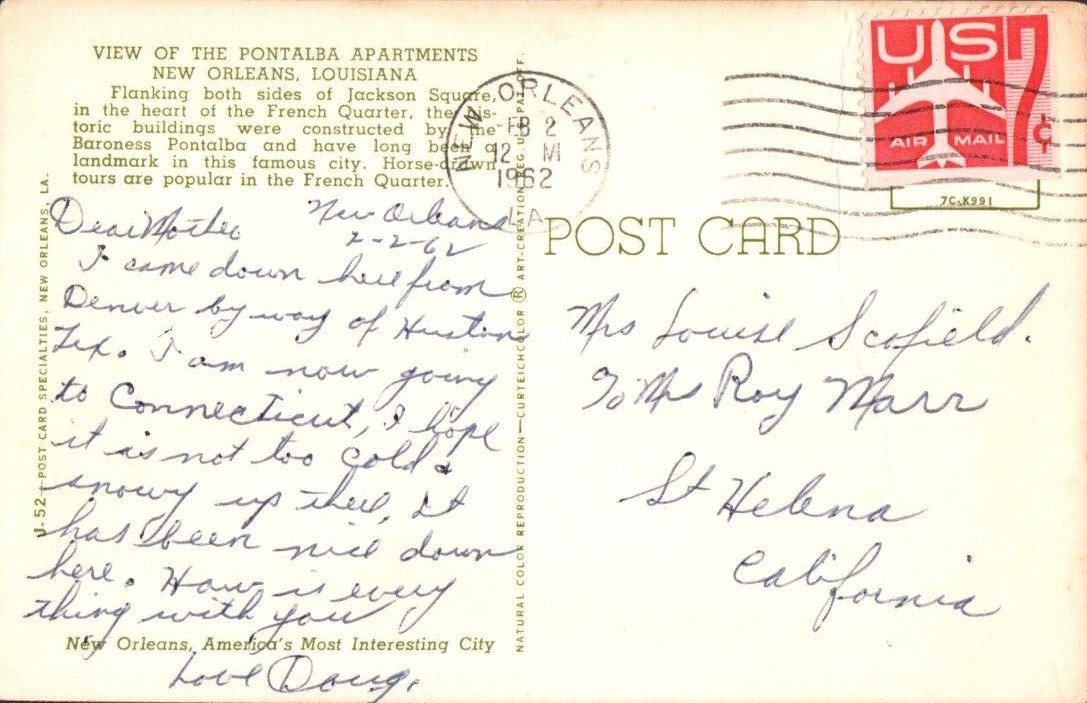 VIEW OF THE PONTALBA APARTMENTS
NEW ORLEANS, LOUISIANA
Flanking both sides of Jackson Square,
in the heart of the French Quarter, the his-
toric buildings were constructed by the
Baroness Pontalba and have long been a
landmark in this famous city. Horse-drawn
tours are popular in the French Quarter.
New Orleans
2-2-62
Dear Mother
I came down here from
Denver by way of Huston
Tex. I am now going
to Connecticut, I hope
it is not too cold &
snowy up there, It
has been nice down
here. How is every
thing with you
New Orleans, America's Most Interesting City
Love Doug.
J-52—POST CARD SPECIALTIES, NEW ORLEANS, LA.
NATURAL COLOR REPRODUCTION—CURTEICHCOLOR ® ART-CREATION REG. U.S. PAT. OFF.
NEW ORLEANS
FEB 2
12 M
1962
LA
US 7¢
AIR MAIL
7C-K991
POST CARD
Mrs Louise Scofield.
To Mrs Roy Marr
St Helena
California